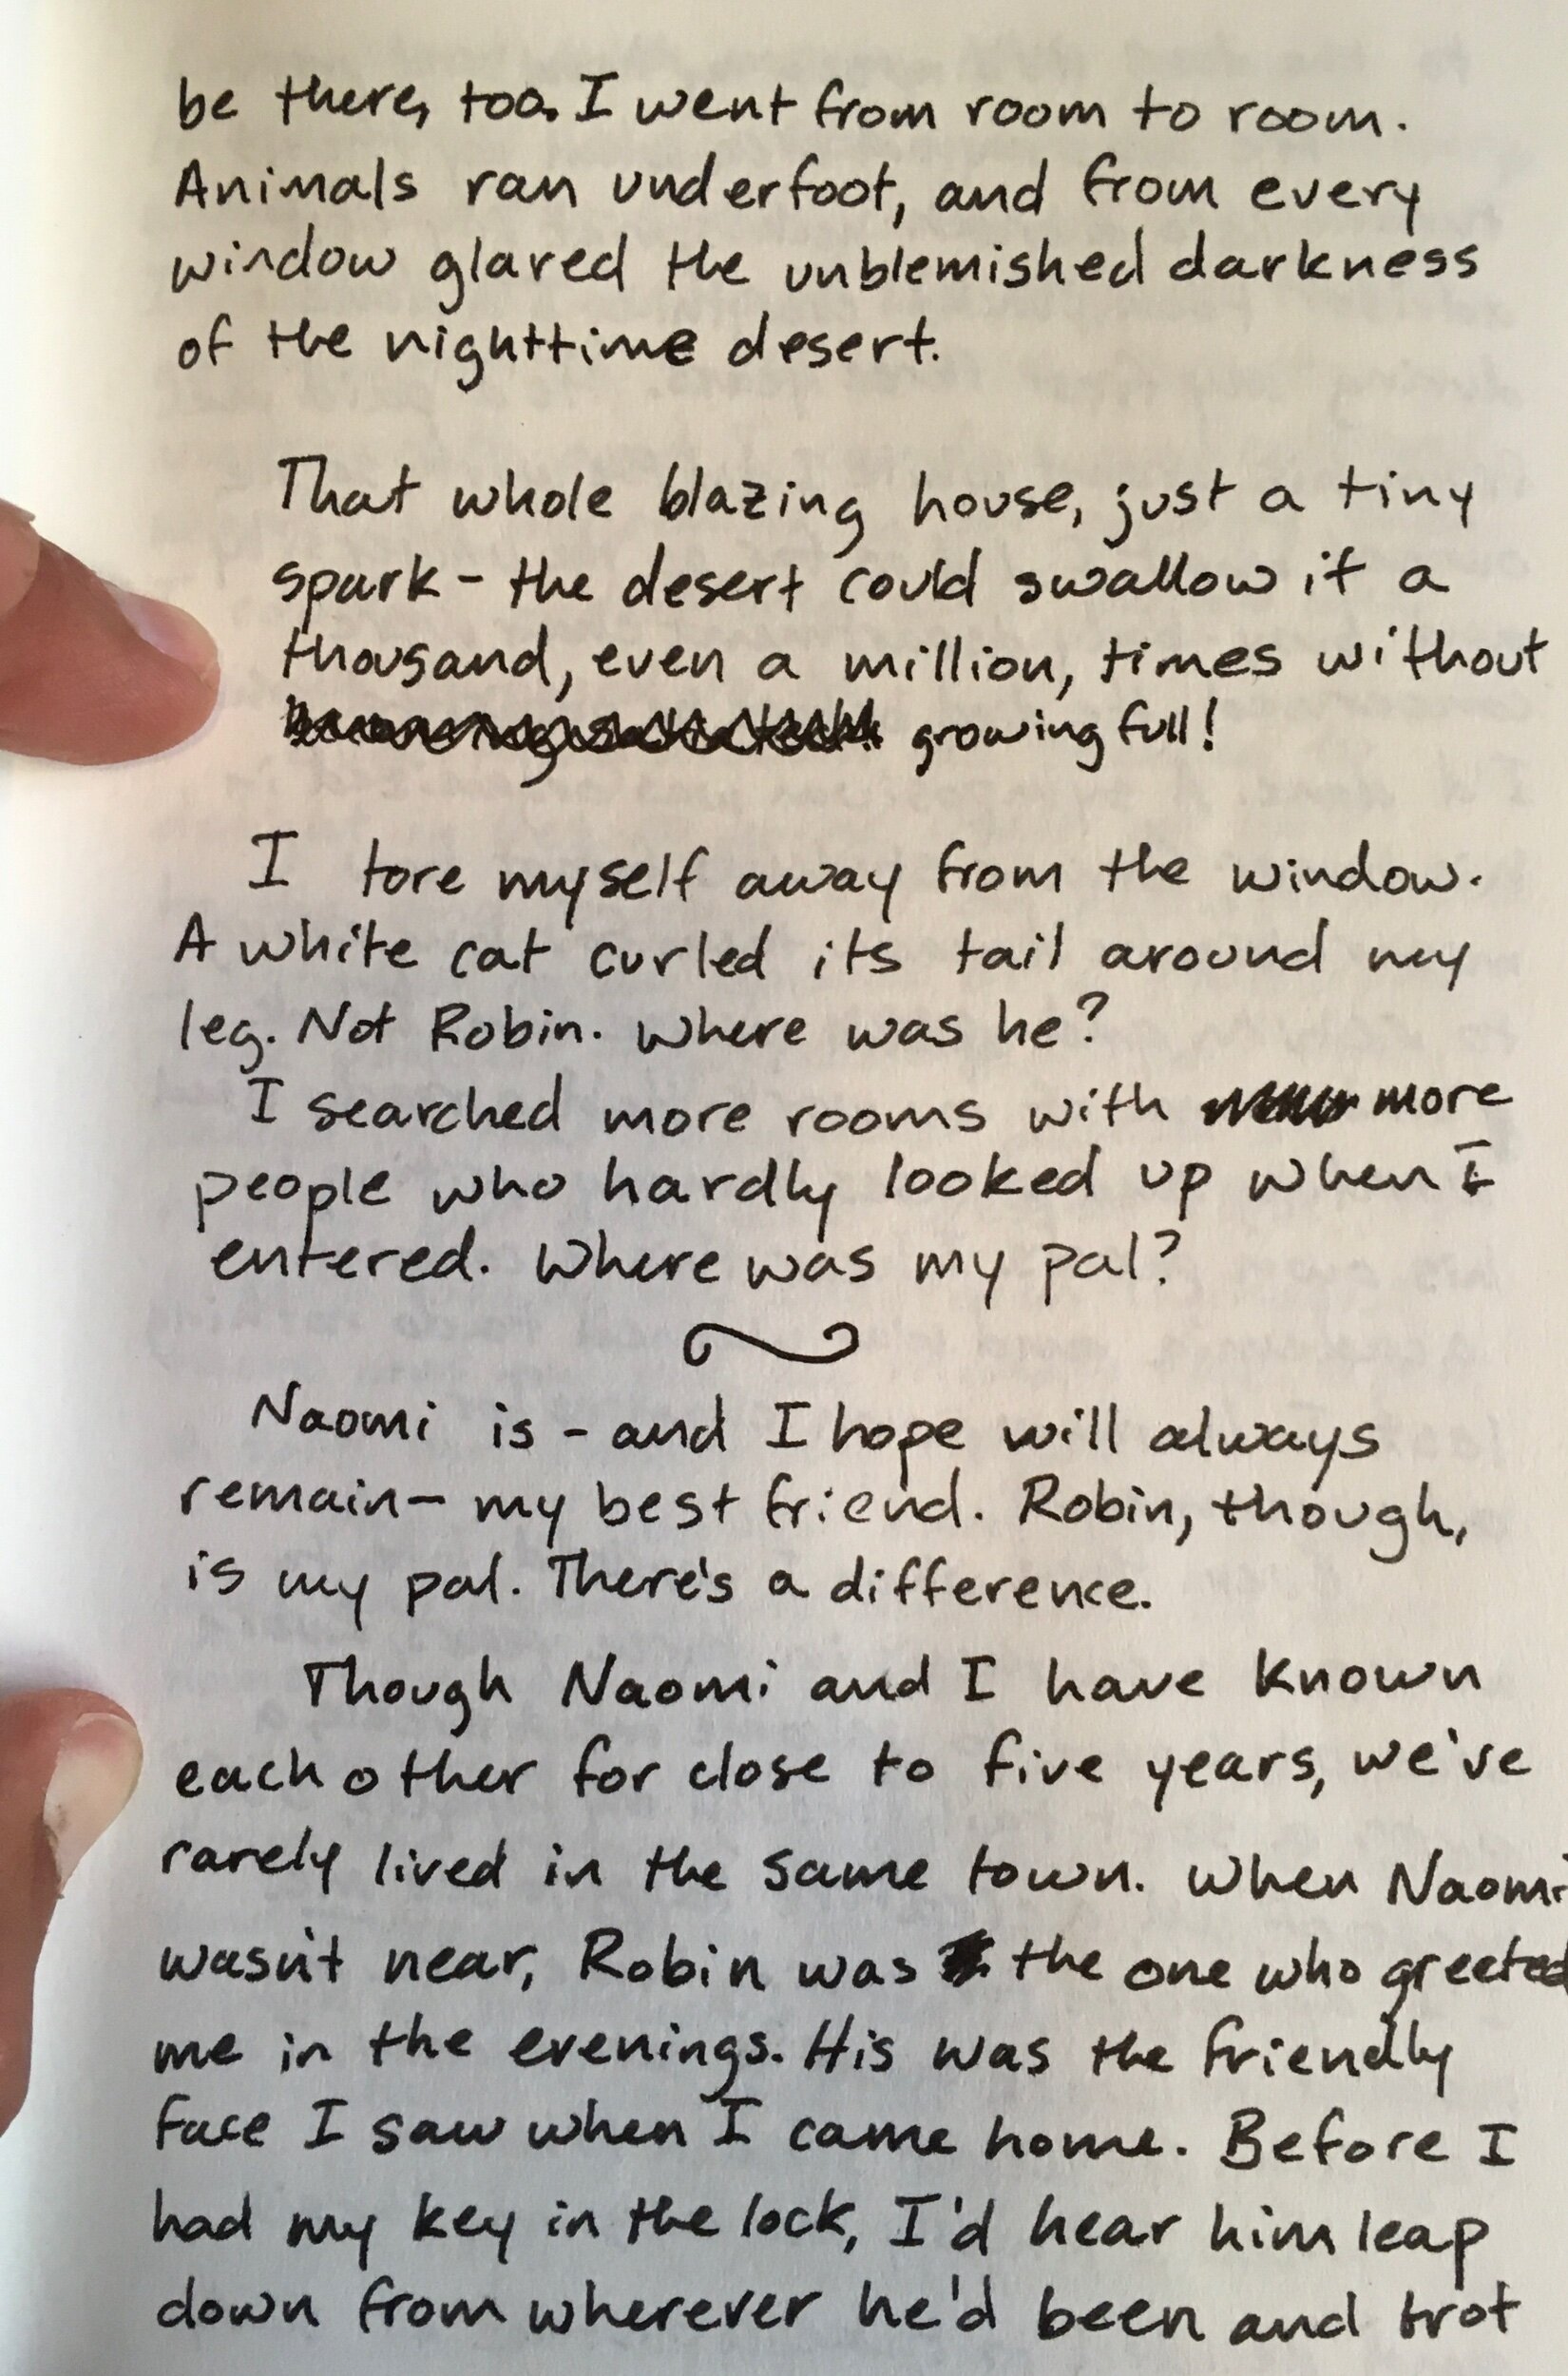 be there, too. I went from room to room.
Animals ran underfoot, and from every
window glared the unblemished darkness
of the nighttime desert.
That whole blazing house, just a tiny
spark - the desert could swallow it a
thousand, even a million, times without
growing full!
I tore myself away from the window.
A white cat curled its tail around my
leg. Not Robin. Where was he?
I searched more rooms with more
people who hardly looked up when I
entered. Where was my pal?
Naomi is - and I hope will always
remain - my best friend. Robin, though,
is my pal. There's a difference.
Though Naomi and I have known
each other for close to five years, we've
rarely lived in the same town. When Naomi
wasn't near, Robin was the one who greeted
me in the evenings. His was the friendly
face I saw when I came home. Before I
had my key in the lock, I'd hear him leap
down from wherever he'd been and trot